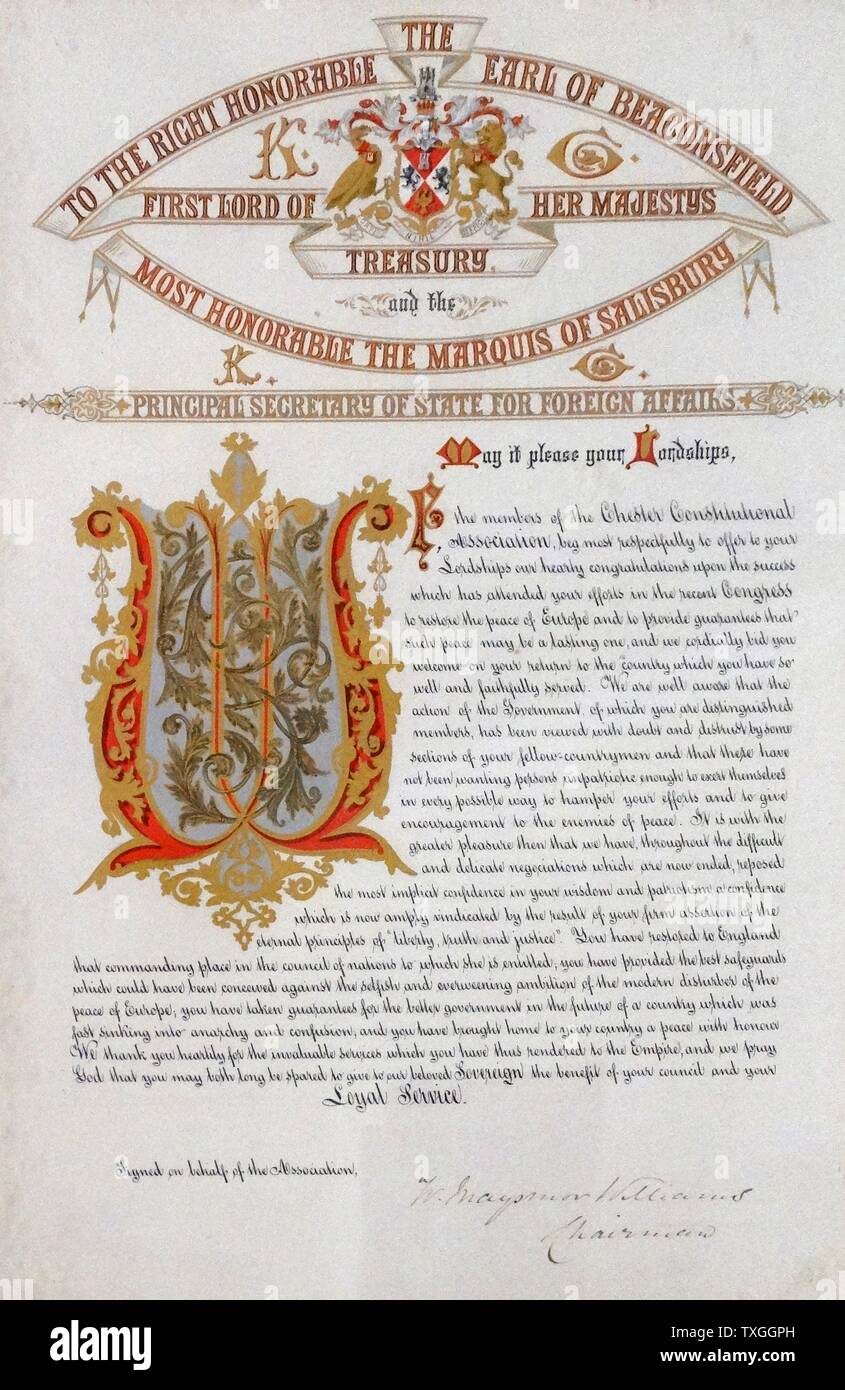 THE
TO THE RIGHT HONORABLE EARL OF BEACONSFIELD.
K. G.
FIRST LORD OF HER MAJESTYS
TREASURY.
and the
MOST HONORABLE THE MARQUIS OF SALISBURY
K. G.
PRINCIPAL SECRETARY OF STATE FOR FOREIGN AFFAIRS.
May it please your Lordships,
WE, the members of the Chester Constitutional
Association, beg most respectfully to offer to your
Lordships our hearty congratulations upon the success
which has attended your efforts in the recent Congress
to restore the peace of Europe and to provide guarantees that
such peace may be a lasting one, and we cordially bid you
welcome on your return to the country which you have so
well and faithfully served. We are well aware that the
action of the Government, of which you are distinguished
members, has been viewed with doubt and distrust by some
sections of your fellow-countrymen and that there have
not been wanting persons unpatriotic enough to exert themselves
in every possible way to hamper your efforts and to give
encouragement to the enemies of peace. It is with the
greater pleasure then that we have, throughout the difficult
and delicate negociations which are now ended, reposed
the most implicit confidence in your wisdom and patriotism a confidence
which is now amply vindicated by the result of your firm assertion of the
eternal principles of "liberty, truth and justice". You have restored to England
that commanding place in the council of nations to which she is entitled; you have provided the best safeguards
which could have been conceived against the selfish and overweening ambition of the modern disturber of the
peace of Europe; you have taken guarantees for the better government in the future of a country which was
fast sinking into anarchy and confusion; and you have brought home to your country a peace with honour
We thank you heartily for the invaluable services which you have thus rendered to the Empire, and we pray
God that you may both long be spared to give to our beloved Sovereign the benefit of your council and your
Loyal Service.
Signed on behalf of the Association,
W. Maysmor Williams
Chairman
alamy
Image ID: TXGGPH
www.alamy.com